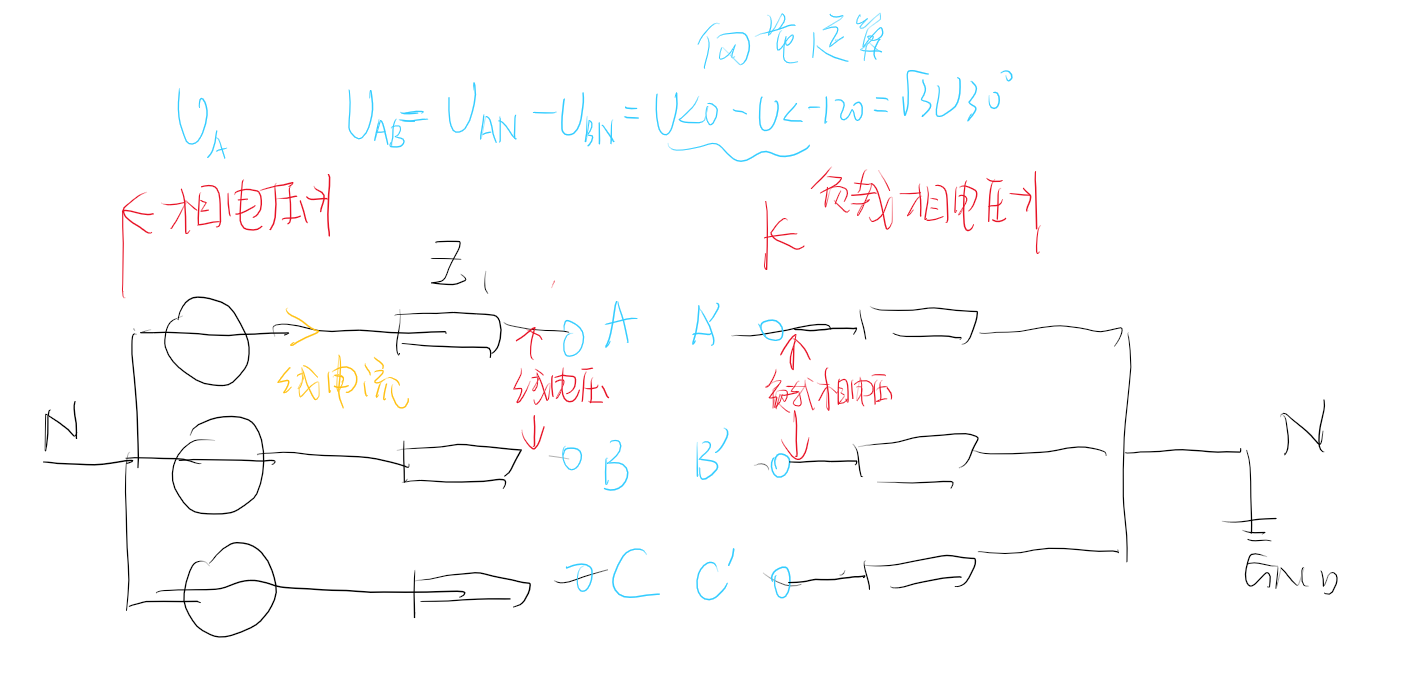 向量运算
U_A U_AB = U_AN - U_BN = U<0 - U<-120 = √3U30°
相电压 负载相电压
Z₁
A A'
线电流 线电压 负载相电压
N B B' N
C C' GND